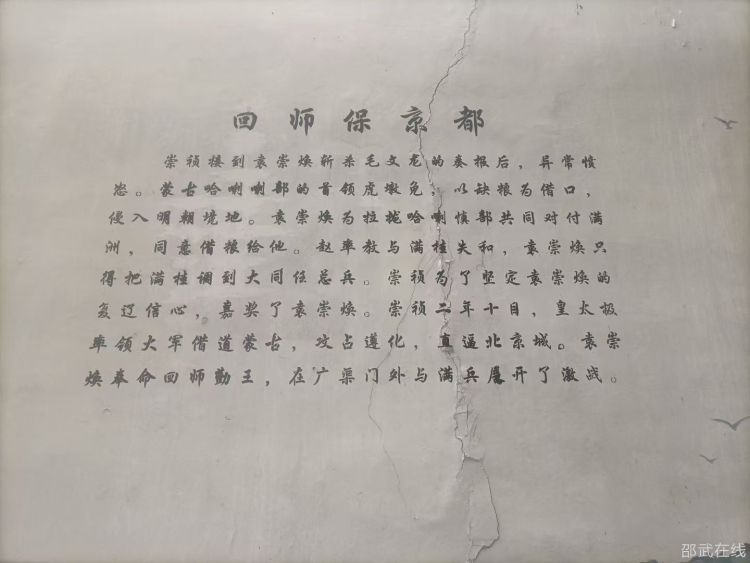 回师保京都
崇祯接到袁崇焕斩杀毛文龙的奏报后，异常愤
怒。蒙古哈喇喇部的首领虎墩兔，以缺粮为借口，
侵入明朝境地。袁崇焕为拉拢哈喇慎部共同对付满
洲，同意借粮给他。赵率教与满桂失和，袁崇焕只
得把满桂调到大同任总兵。崇祯为了坚定袁崇焕的
复辽信心，嘉奖了袁崇焕。崇祯二年十目，皇太极
率领大军借道蒙古，攻占遵化，直逼北京城。袁崇
焕奉命回师勤王，在广渠门外与满兵展开了激战。
邵武在线